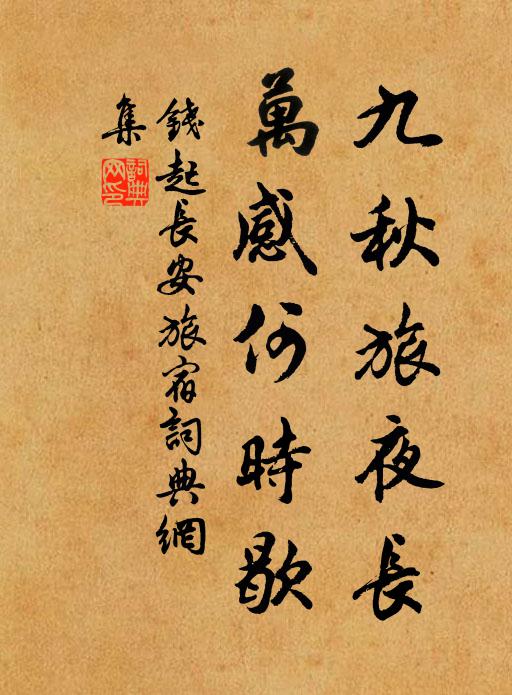 九秋旅夜長
萬感何時歇
錢起長安旅宿詞典網
集
詞典網印